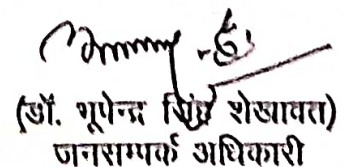 (डॉ. भूपेन्द्र सिंह शेखावत)
जनसम्पर्क अधिकारी